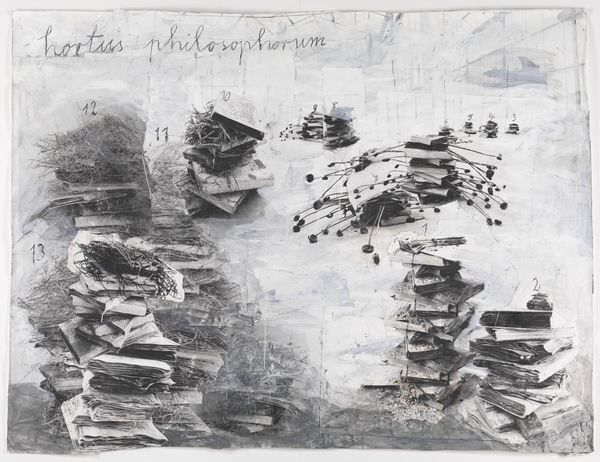 hortus philosophorum
10
12
11
9 8
5 4 3
13
1
2